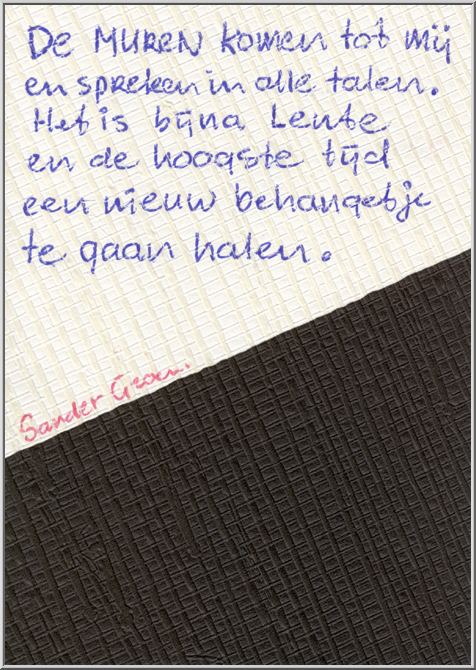 De MUREN komen tot mij
en spreken in alle talen.
Het is bijna Lente
en de hoogste tijd
een nieuw behangetje
te gaan halen.
Sander